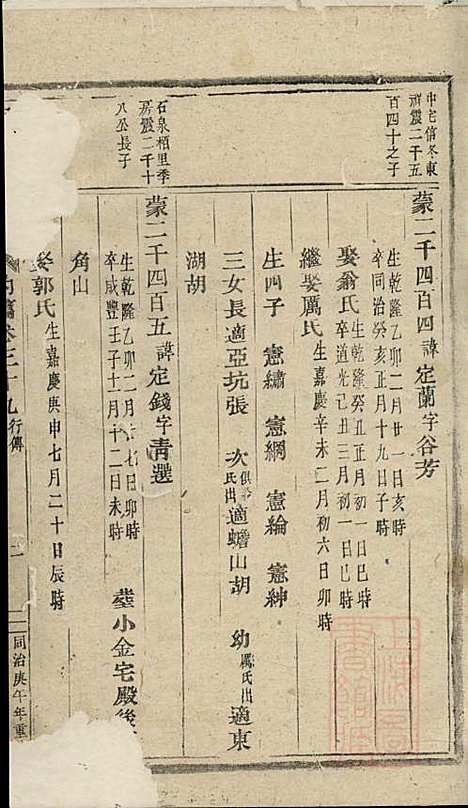 中宅信冬東
衕震二千五
百四十之子
蒙二千四百四諱定蘭字谷芳
生乾隆乙卯二月廿一日亥時
卒同治癸亥正月十九日子時
娶翁氏生乾隆癸丑正月初一日巳時
卒道光己丑三月初一日巳時
繼娶厲氏生嘉慶辛未二月初六日卯時
生四子 憲繡 憲綱 憲綸 憲紳
三女長適亞坑張 次俱翁氏出適蟾山胡 幼厲氏出適東
湖胡
石泉栢里季
房震二千十
八公長子
蒙二千四百五諱定錢字青選
生乾隆乙卯二月 七日卯時
卒咸豐壬子十一月十二日未時 塟小金宅殿後
角山
娶郭氏生嘉慶庚申七月二十日辰時
內篇卷三十九行傳
同治庚午年重